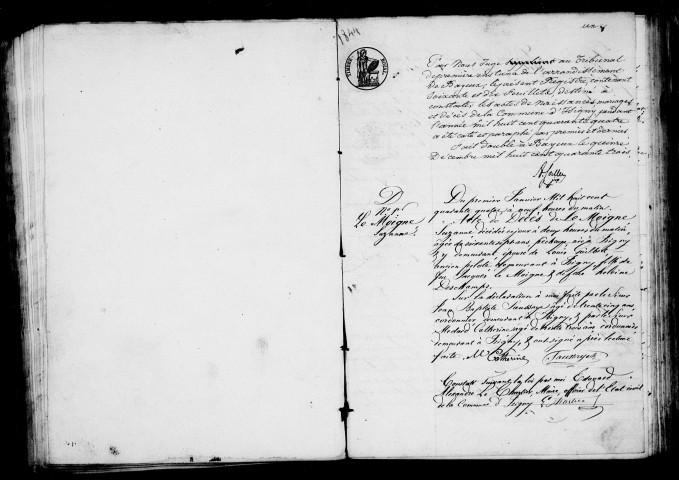 1844
TIMBRE ROYAL
Par Nous Juge suppléant au Tribunal
de première instance de l'arrondissement
de Bayeux, le présent Registre, contenant
soixante et dix feuillets, destiné à
constater les actes de naissances, mariages
et décès de la Commune d'Isigny pendant
l'année mil huit cent quarante quatre
a été coté et paraphé par premier et dernier
Fait double à Bayeux le quinze
Décembre mil huit cent quarante trois.
D
N° 1er
Le Moigne
Suzanne
Du premier Janvier Mil huit cent
quarante quatre, à neuf heures du matin.
Acte de Décès de Le Moigne
Suzanne décédée ce jour à deux heures du matin,
âgée de soixante sept ans, née à Isigny
& y demeurant, épouse de Louis Guilbert
ancien pilote demeurant à Isigny, fille de
feu Jacques le Moigne & de feue
Deschamps.
Sur la déclaration à moi faite par le Sieur
Jean Baptiste âgé de trente cinq ans,
cordonnier demeurant à Isigny, & par le Sieur
Médard Catherine âgé de trente trois ans cordonnier
demeurant à Isigny, & ont signé après lecture
faite. M Catherine
Constaté suivant la loi par moi Edouard
Alexandre Le Chartier, Maire, officier de l'Etat civil
de la Commune d'Isigny